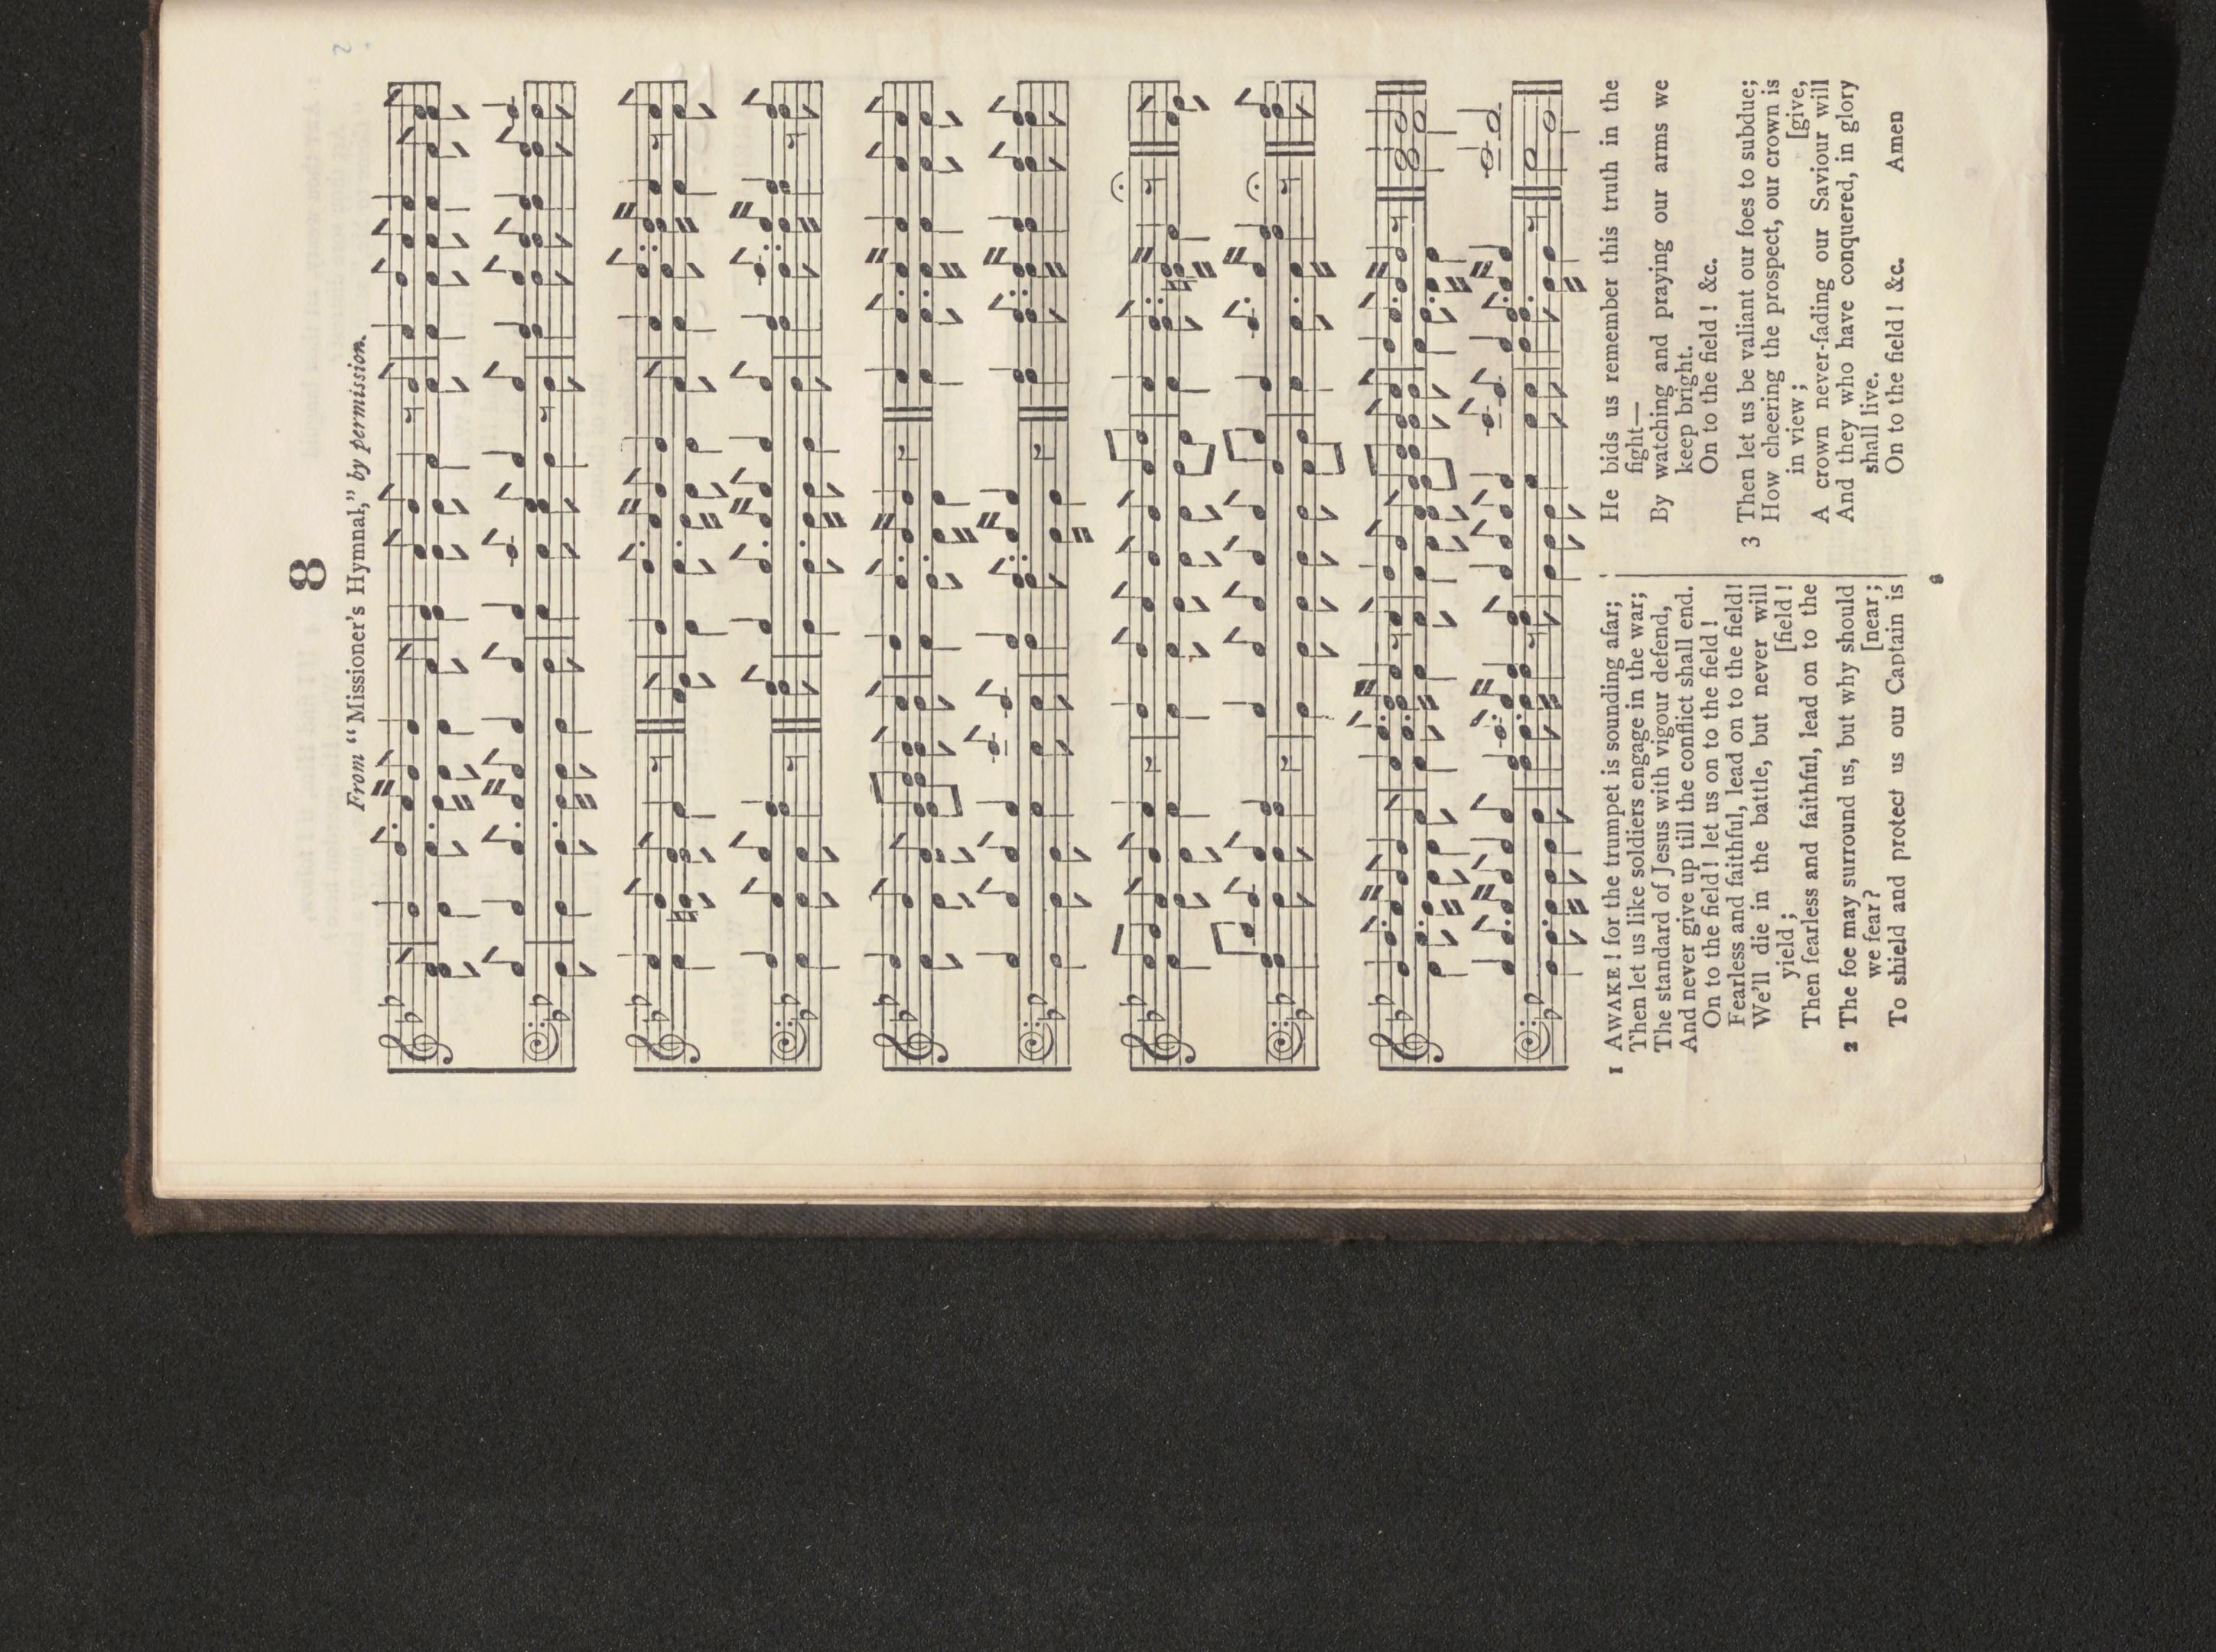 8
From "Missioner's Hymnal," by permission.
1 AWAKE! for the trumpet is sounding afar;
Then let us like soldiers engage in the war;
The standard of Jesus with vigour defend,
And never give up till the conflict shall end.
On to the field! let us on to the field!
Fearless and faithful, lead on to the field!
We'll die in the battle, but never will
yield; [field!
Then fearless and faithful, lead on to the
2 The foe may surround us, but why should
we fear? [near;
To shield and protect us our Captain is
He bids us remember this truth in the
fight—
By watching and praying our arms we
keep bright.
On to the field! &c.
3 Then let us be valiant our foes to subdue;
How cheering the prospect, our crown is
in view; [give,
A crown never-fading our Saviour will
And they who have conquered, in glory
shall live.
On to the field! &c. Amen